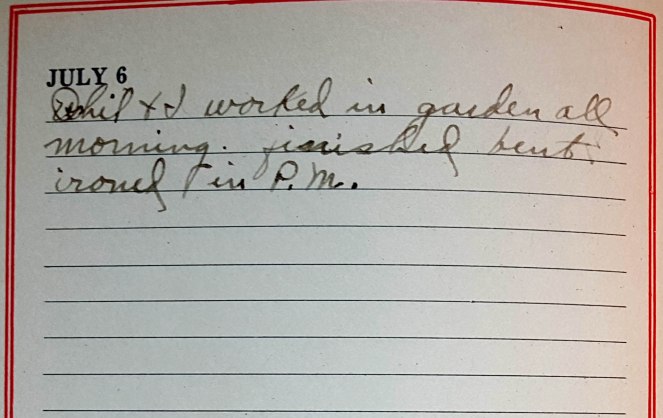 JULY 6
Phil & I worked in garden all
morning. finished
ironed in P.M.